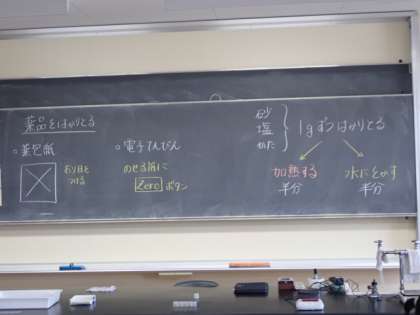 薬品をはかりとる
○薬包紙
おり目を
つける
○電子てんびん
のせる前に
Zero ボタン
砂
塩
1gずつはかりとる
加熱する
半分
水にとかす
半分